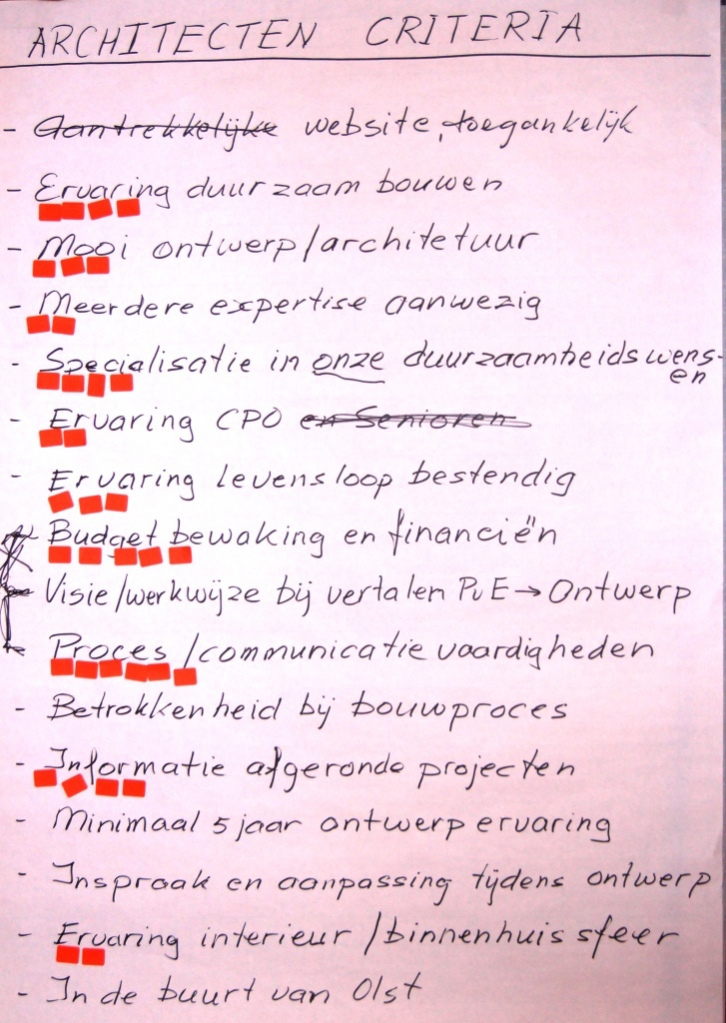 ARCHITECTEN CRITERIA
- Aantrekkelijke website, toegankelijk
- Ervaring duurzaam bouwen
- Mooi ontwerp/architetuur
- Meerdere expertise aanwezig
- Specialisatie in onze duurzaamheidswens-
en
- Ervaring CPO en Senioren
- Ervaring levensloop bestendig
Budget bewaking en financiën
Visie/werkwijze bij vertalen PvE → Ontwerp
Proces/communicatie vaardigheden
- Betrokkenheid bij bouwproces
- Informatie afgeronde projecten
- Minimaal 5 jaar ontwerp ervaring
- Inspraak en aanpassing tijdens ontwerp
- Ervaring interieur/binnenhuis sfeer
- In de buurt van Olst